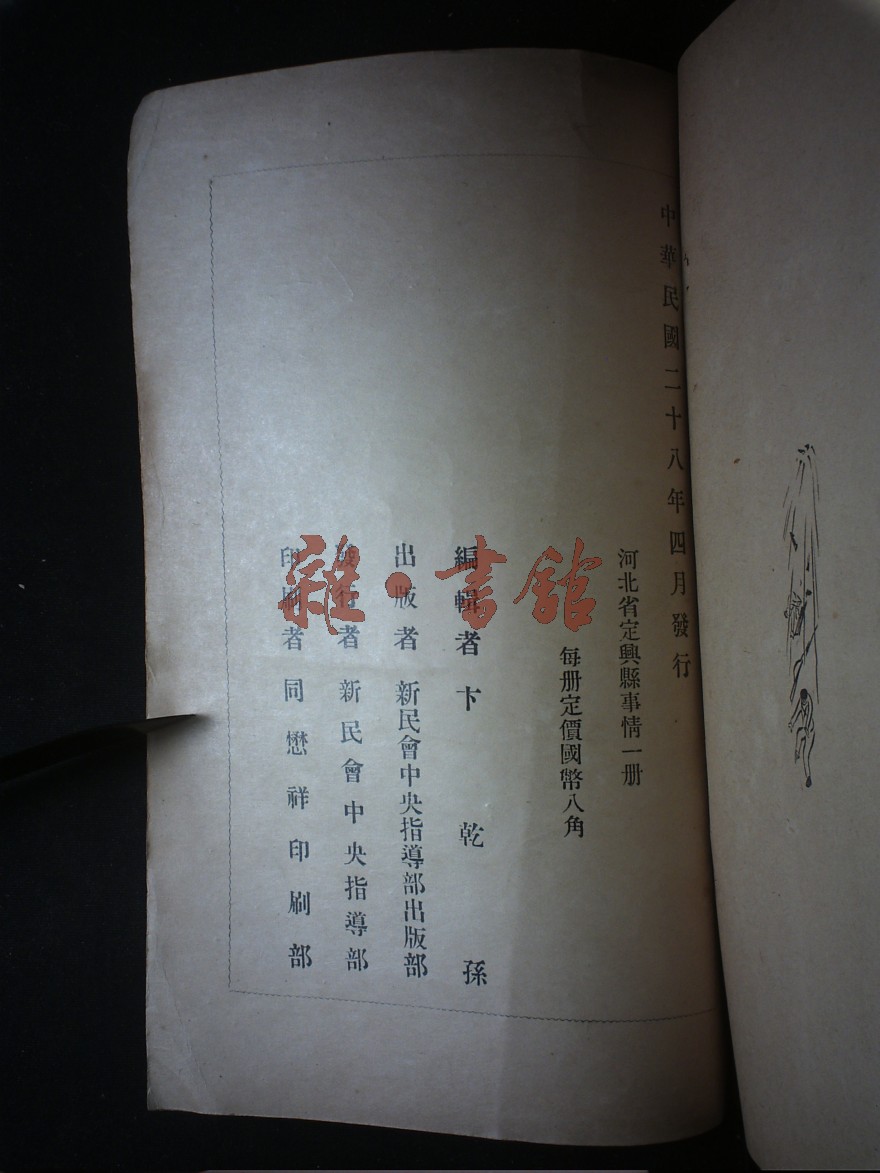 中華民國二十八年四月發行
河北省定興縣事情一册
每册定價國幣八角
編輯者 卞乾孫
出版者 新民會中央指導部出版部
發行者 新民會中央指導部
印刷者 同懋祥印刷部
雜·書館